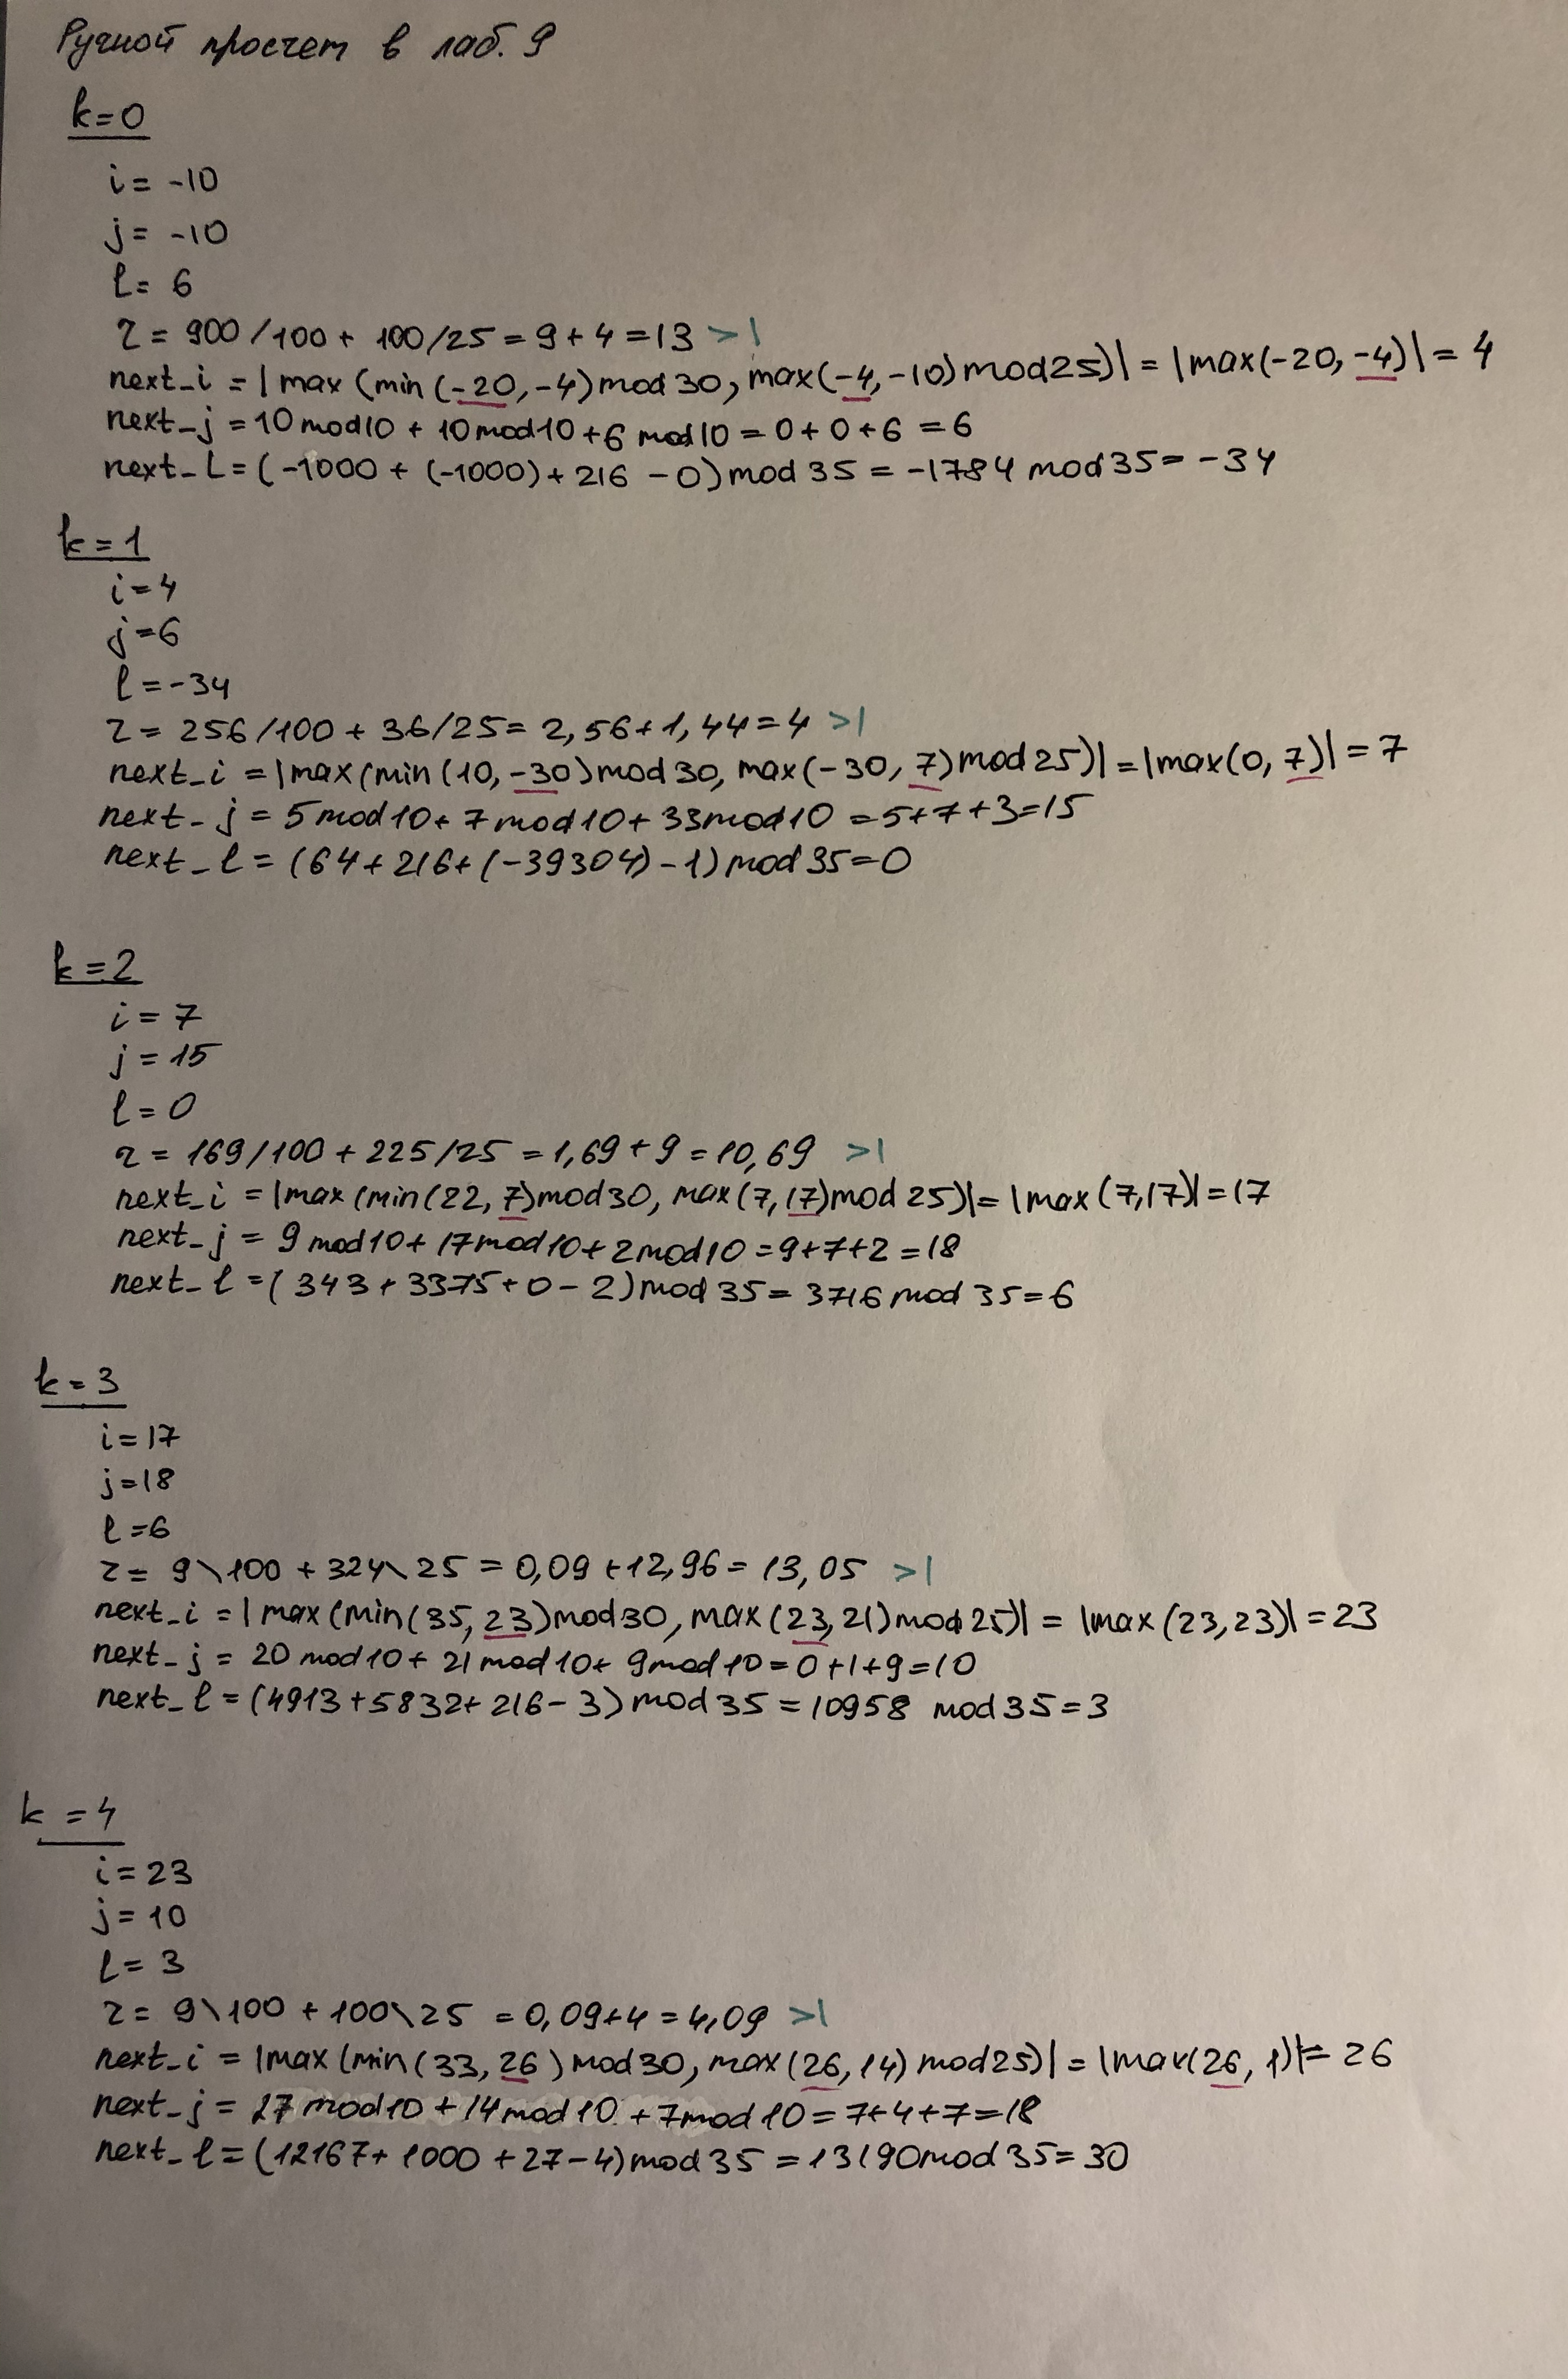 Ручной просчет в лаб. 9
k=0
i= -10
j= -10
l= 6
r = 900/100 + 100/25 = 9+4=13 >1
next_i = |max(min(-20,-4)mod30, max(-4,-10)mod25)| = |max(-20,-4)| = 4
next_j = 10mod10 + 10mod10+6 mod10 = 0+0+6 = 6
next_L=(-1000 + (-1000)+216 -0)mod 35 = -1784 mod 35= -34
k=1
i=4
j=6
l=-34
r= 256/100 + 36/25= 2,56+1,44=4 >1
next_i =|max(min(10,-30)mod30, max(-30,7)mod25)|=|max(0,7)|=7
next_j = 5mod10+ 7mod10+33mod10 =5+7+3=15
next_l = (64+216+(-39304)-1)mod 35=0
k=2
i=7
j=15
l=0
r= 169/100 + 225/25 =1,69+9=10,69 >1
next_i =|max(min(22,7)mod30, max(7,17)mod25)|=|max(7,17)|=17
next_j = 9mod10+17mod10+2mod10=9+7+2=18
next_l =(343+3375+0-2)mod 35= 3716 mod 35=6
k=3
i=17
j=18
l=6
r= 9\100 + 324\25 = 0,09+12,96= 13,05 >1
next_i =|max(min(35,23)mod30, max(23,21)mod25)|= |max(23,23)|=23
next_j = 20mod10+ 21mod10+ 9mod10=0+1+9=10
next_l =(4913+5832+216-3)mod 35 =10958 mod 35=3
k=4
i=23
j=10
l=3
r= 9\100 + 100\25 =0,09+4=4,09 >1
next_i = |max(min(33,26)mod30, max(26,14)mod25)| = |max(26,1)|= 26
next_j = 27mod10 +14mod10 +7mod10=7+4+7=18
next_l =(12167+ 1000 +27-4)mod 35 =13190mod 35= 30